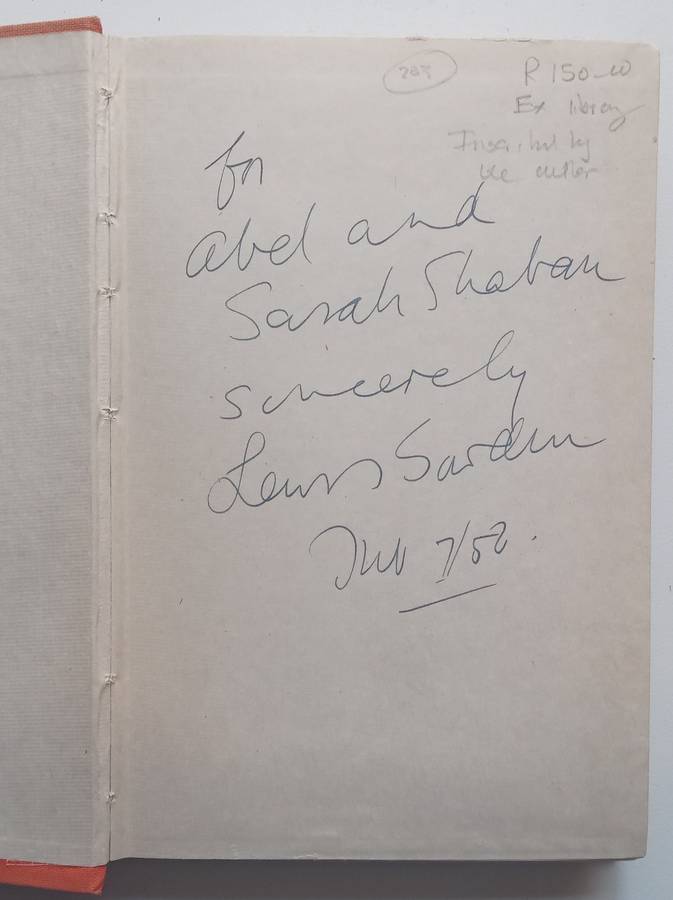 285
R 150-00
Ex library
Inscribed by
the author
for
Abel and
Sarah Shaban
sincerely
Lewis Sowden
7/52.